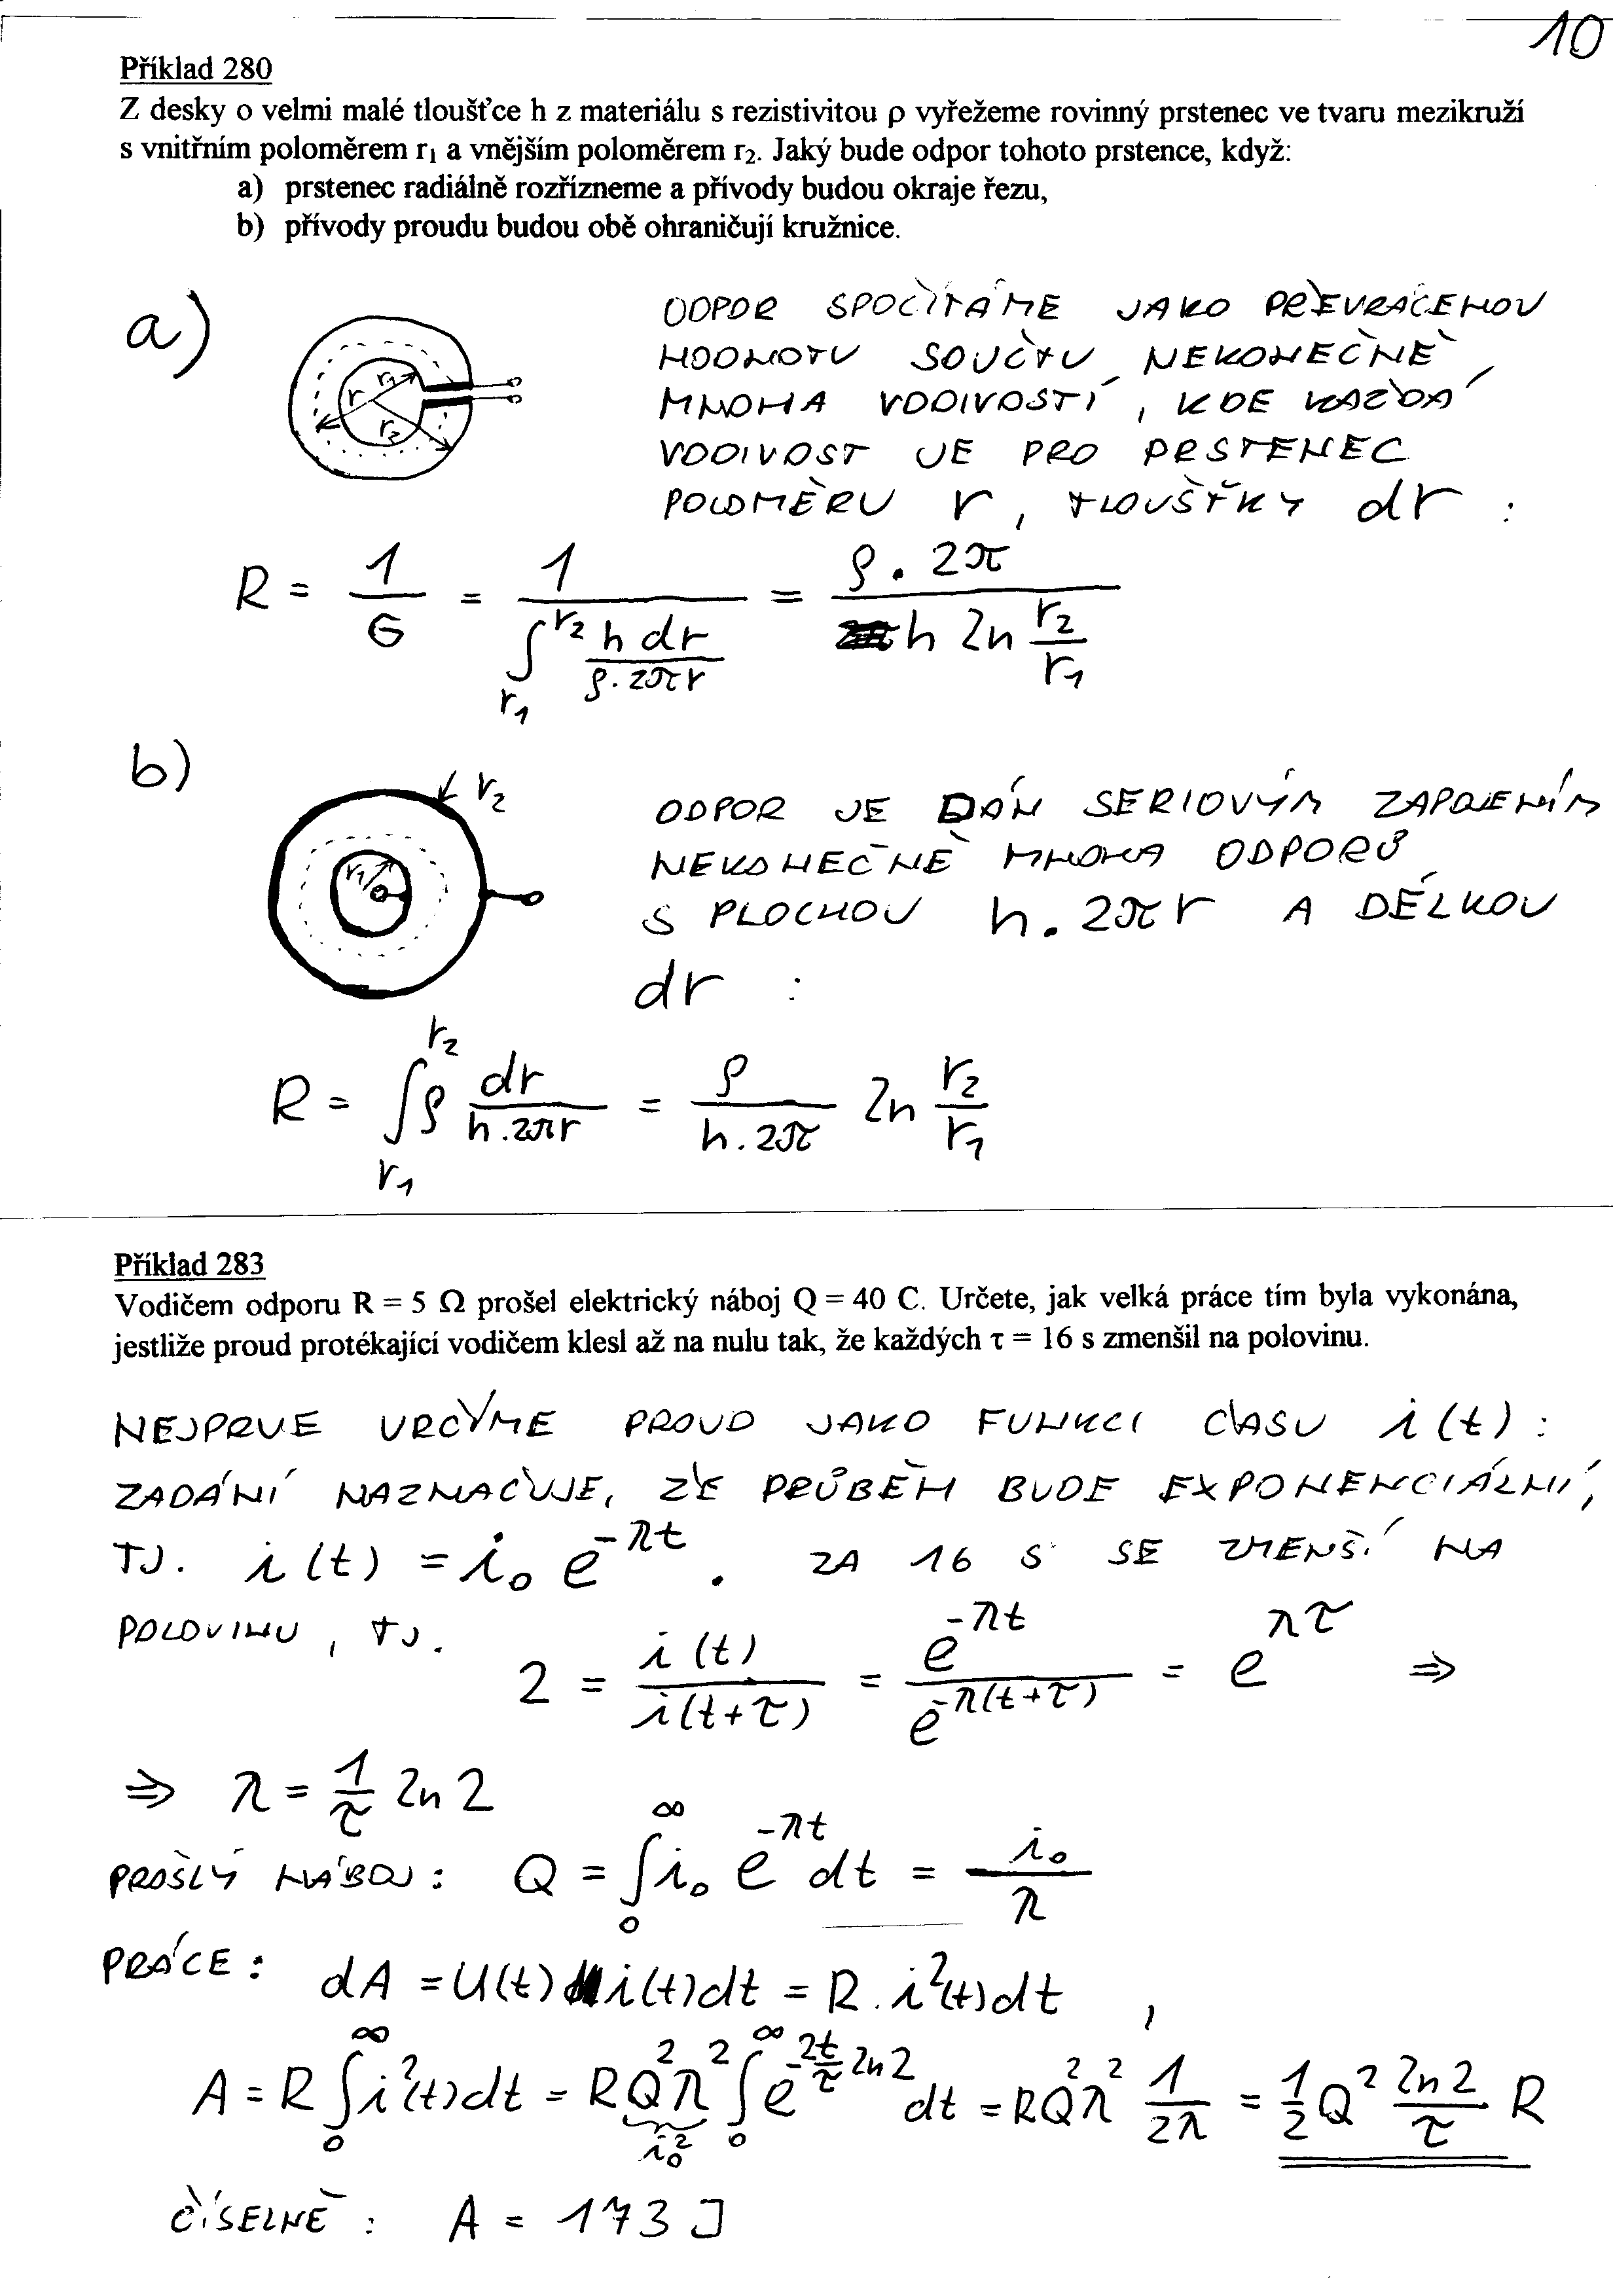 10
Příklad 280
Z desky o velmi malé tloušťce h z materiálu s rezistivitou ρ vyřežeme rovinný prstenec ve tvaru mezikruží
s vnitřním poloměrem r₁ a vnějším poloměrem r₂. Jaký bude odpor tohoto prstence, když:
a) prstenec radiálně rozřízneme a přívody budou okraje řezu,
b) přívody proudu budou obě ohraničují kružnice.
a)
r₁
r
r₂
ODPOR SPOČÍTÁME JAKO PŘEVRÁCENOU
HODNOTU SOUČTU NEKONEČNĚ
MNOHA VODIVOSTÍ, KDE KAŽDÁ
VODIVOST JE PRO PRSTENEC
POLOMĚRU r, TLOUŠŤKY dr :
R = 1/G = 1/(∫_{r₁}^{r₂} h dr/(ρ·2πr)) = ρ·2π/(h ln r₂/r₁)
b)
r₂
r₁
ODPOR JE DÁN SERIOVÝM ZAPOJENÍM
NEKONEČNĚ MNOHA ODPORŮ
S PLOCHOU h·2πr A DÉLKOU
dr :
R = ∫_{r₁}^{r₂} ρ dr/(h·2πr) = ρ/(h·2π) ln r₂/r₁
Příklad 283
Vodičem odporu R = 5 Ω prošel elektrický náboj Q = 40 C. Určete, jak velká práce tím byla vykonána,
jestliže proud protékající vodičem klesl až na nulu tak, že každých τ = 16 s zmenšil na polovinu.
NEJPRVE URČÍME PROUD JAKO FUNKCI ČASU i(t) :
ZADÁNÍ NAZNAČUJE, ŽE PRŮBĚH BUDE EXPONENCIÁLNÍ,
TJ. i(t) = i₀ e^{-λt}. ZA 16 s SE ZMENŠÍ NA
POLOVINU, TJ. 2 = i(t)/i(t+τ) = e^{-λt}/e^{-λ(t+τ)} = e^{λτ} ⇒
⇒ λ = 1/τ ln 2
PROŠLÝ NÁBOJ : Q = ∫_0^∞ i₀ e^{-λt} dt = i₀/λ
PRÁCE : dA = U(t) i(t)dt = R.i²(t)dt ,
A = R ∫_0^∞ i²(t)dt = RQ²λ² ∫_0^∞ e^{-2t/τ ln2} dt = RQ²λ² 1/2λ = 1/2 Q² ln2/τ R
i₀²
ČÍSELNĚ : A = 173 J